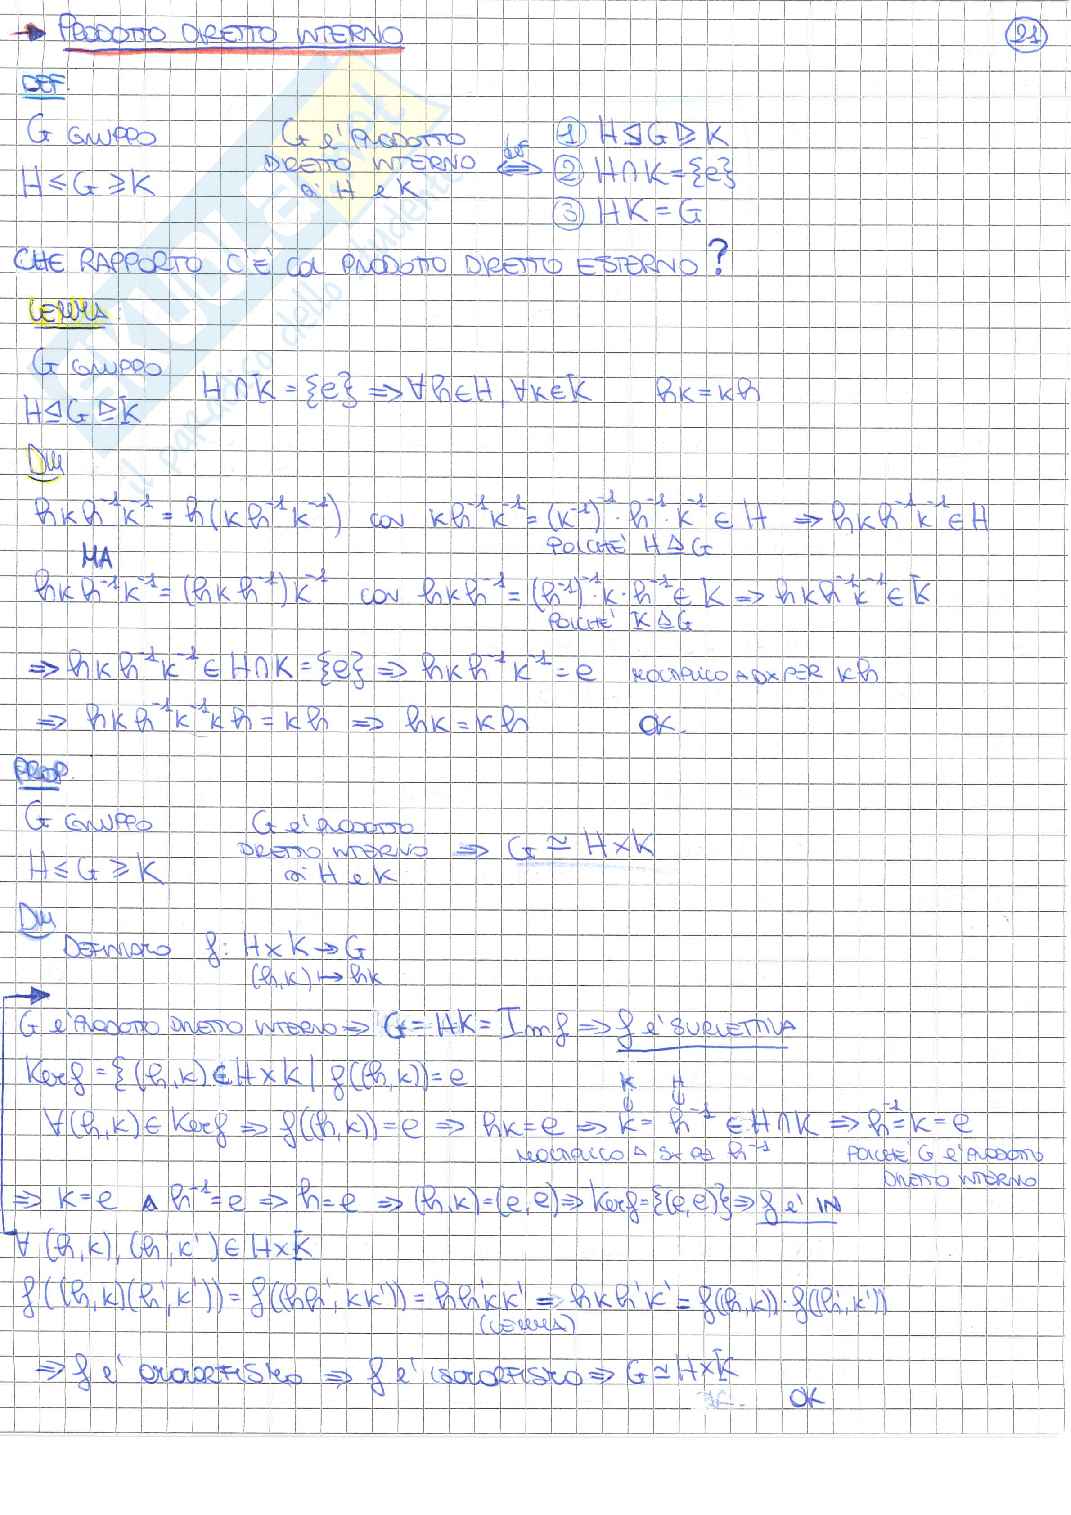 → PRODOTTO DIRETTO INTERNO
21
DEF.
G GRUPPO
H ≤ G ≥ K
G e' PRODOTTO
DIRETTO INTERNO
di H e K
def
⟺
① H ⊴ G ⊵ K
② H ∩ K = {e}
③ HK = G
CHE RAPPORTO C'È COL PRODOTTO DIRETTO ESTERNO?
LEMMA:
G GRUPPO
H ⊴ G ⊵ K
H ∩ K = {e} ⇒ ∀h∈H ∀k∈K hk = kh
DIM
hkh⁻¹k⁻¹ = h(kh⁻¹k⁻¹) con kh⁻¹k⁻¹ = (k⁻¹)⁻¹·h⁻¹·k⁻¹ ∈ H ⇒ hkh⁻¹k⁻¹ ∈ H
POICHÉ H ⊴ G
MA
hkh⁻¹k⁻¹ = (hkh⁻¹)k⁻¹ con hkh⁻¹ = (h⁻¹)⁻¹·k·h⁻¹ ∈ K ⇒ hkh⁻¹k⁻¹ ∈ K
POICHÉ K ⊴ G
⇒ hkh⁻¹k⁻¹ ∈ H∩K = {e} ⇒ hkh⁻¹k⁻¹ = e MOLTIPLICO A DX PER kh
⇒ hkh⁻¹k⁻¹kh = kh ⇒ hk = kh OK.
PROP.
G GRUPPO
H ≤ G ≥ K
G e' PRODOTTO
DIRETTO INTERNO
di H e K
⇒ G ≃ H×K
DIM
DEFINIAMO f: H×K → G
(h,k) ↦ hk
G e' PRODOTTO DIRETTO INTERNO ⇒ G = HK = Im f ⇒ f e' SURIETTIVA
Ker f = {(h,k) ∈ H×K | f((h,k)) = e
K H
∀(h,k) ∈ Ker f ⇒ f((h,k)) = e ⇒ hk = e ⇒ k = h⁻¹ ∈ H∩K ⇒ h⁻¹ = k = e
MOLTIPLICO A SX di h⁻¹
POICHÉ G e' PRODOTTO
DIRETTO INTERNO
⇒ k = e ∧ h⁻¹ = e ⇒ h = e ⇒ (h,k) = (e,e) ⇒ Ker f = {(e,e)} ⇒ f e' IN
∀ (h,k), (h',k') ∈ H×K
f((h,k)(h',k')) = f((hh', kk')) = hh'kk' = hkh'k' = f((h,k))·f((h',k'))
(LEMMA)
⇒ f e' OMOMORFISMO ⇒ f e' ISOMORFISMO ⇒ G ≃ H×K
OK
il paradiso dello studente